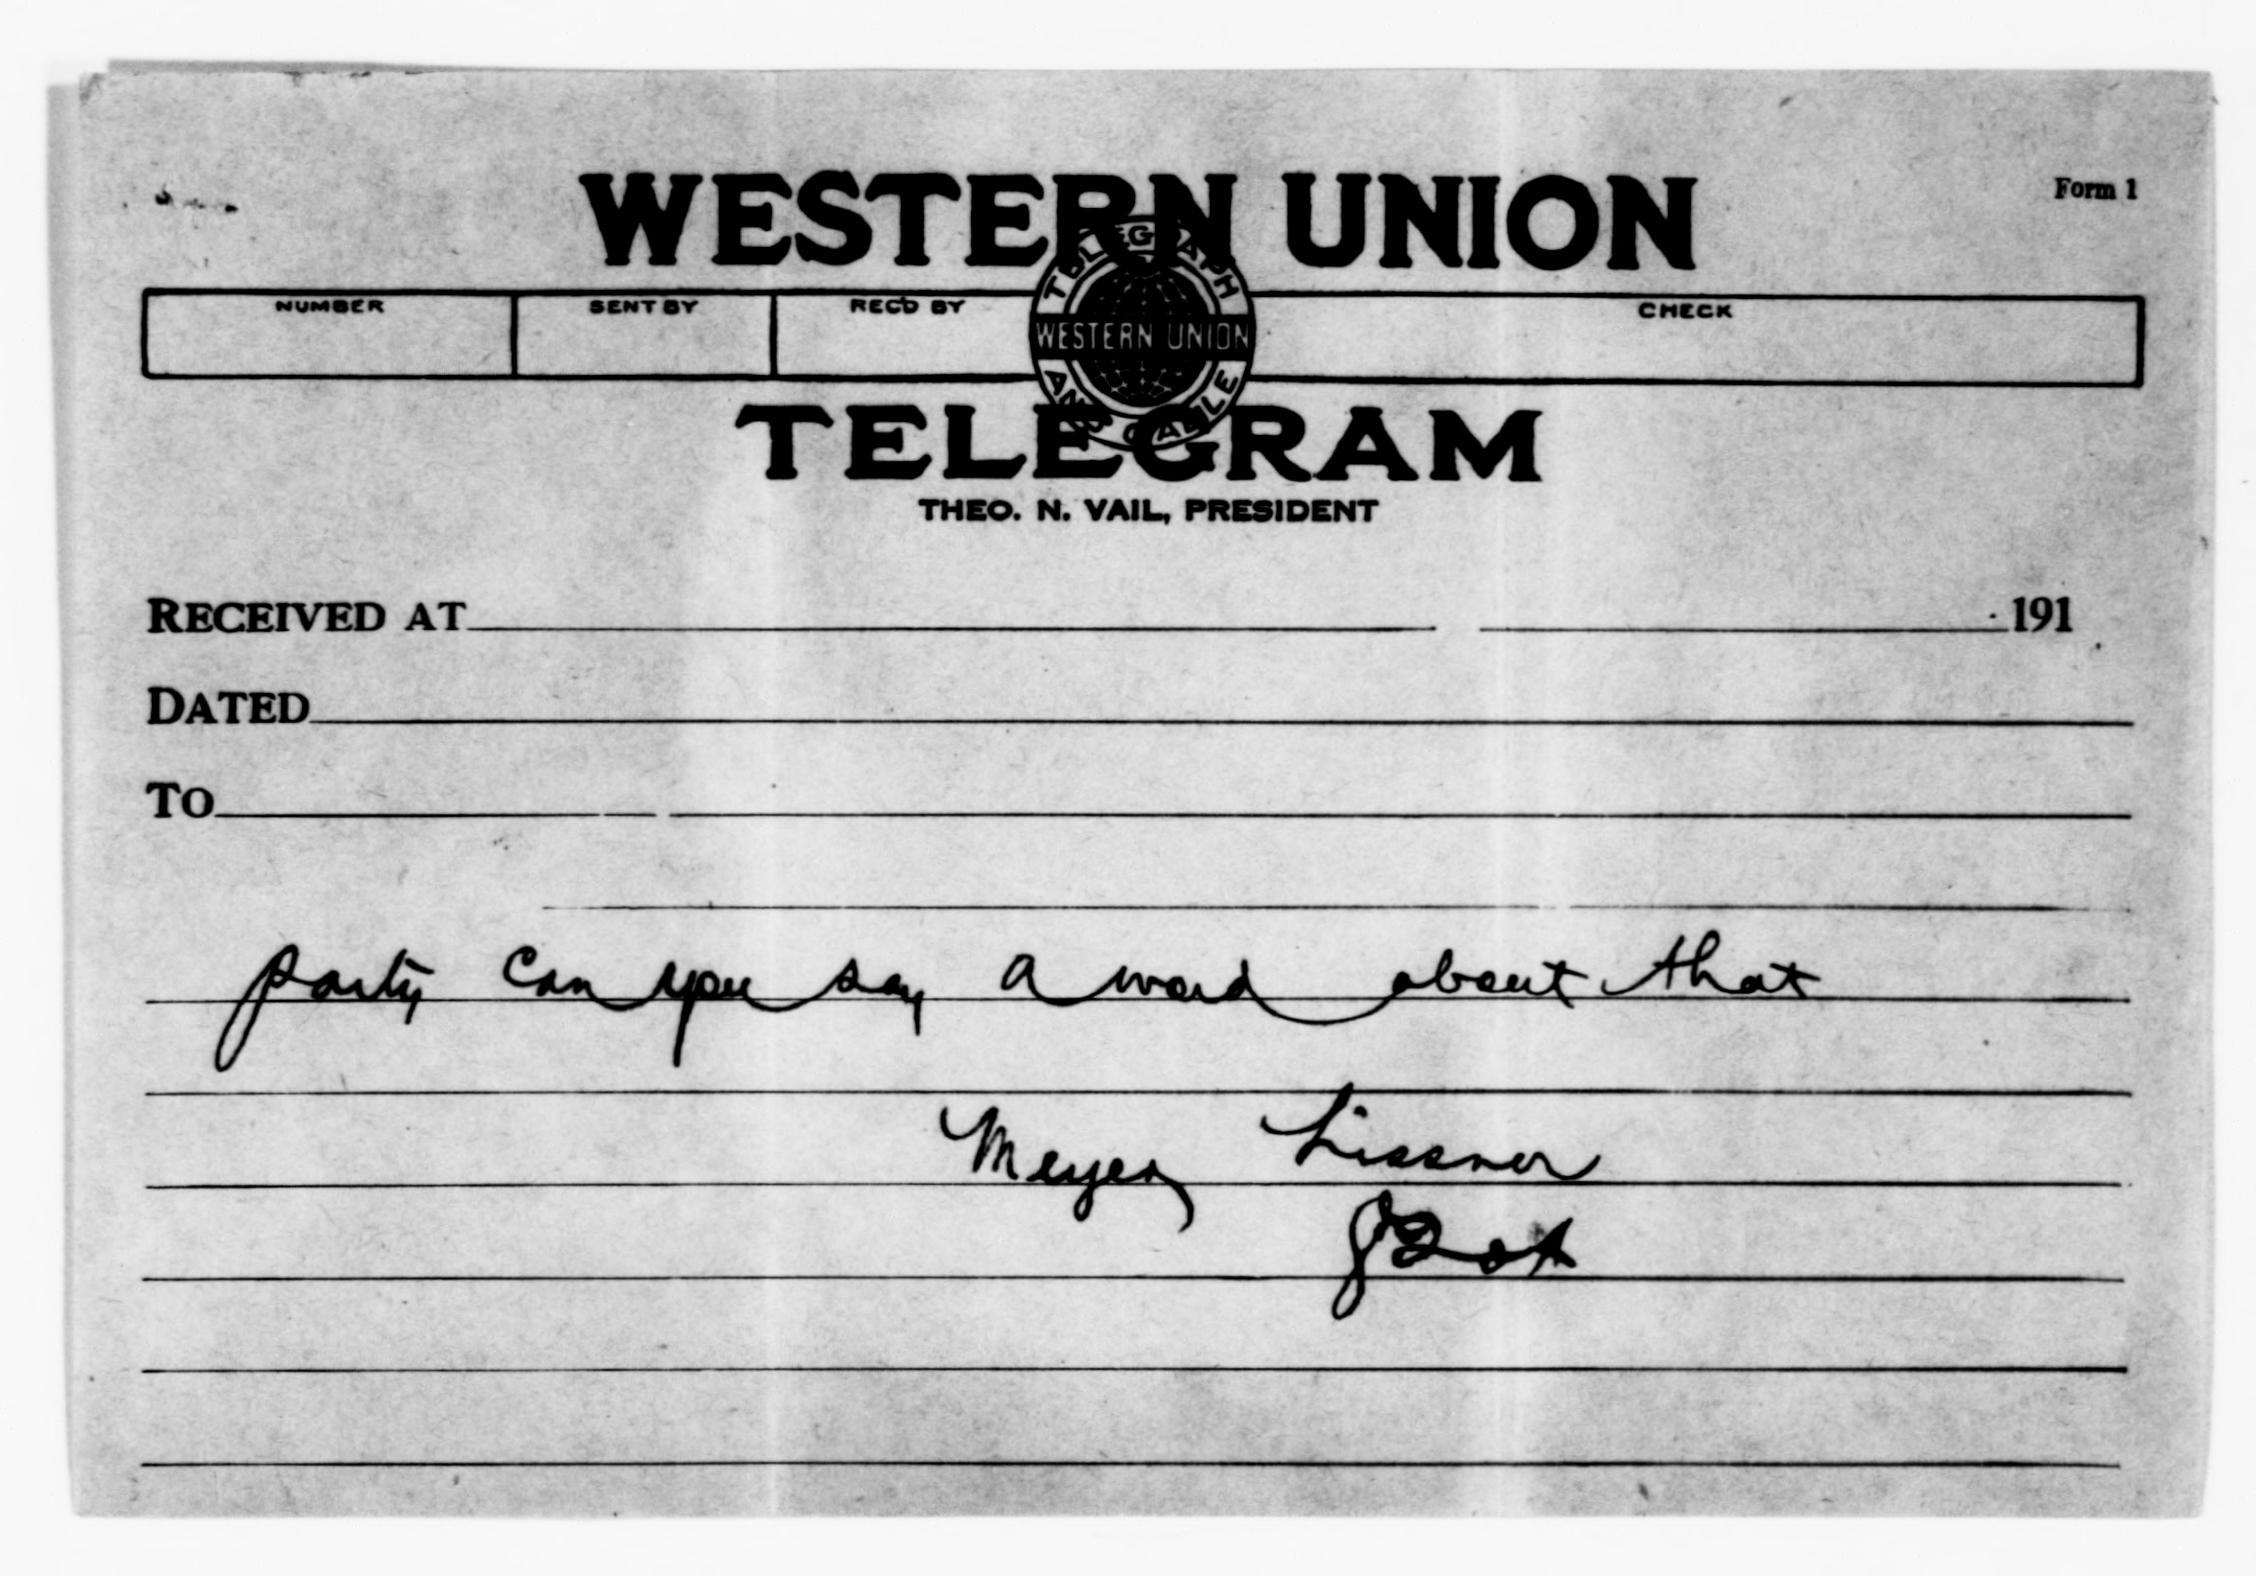 WESTERN UNION
Form 1
NUMBER SENT BY REC'D BY CHECK
TELEGRAPH
WESTERN UNION
AND CABLE
TELEGRAM
THEO. N. VAIL, PRESIDENT
RECEIVED AT 191
DATED
TO
party can you say a word about that
Meyer Lissner